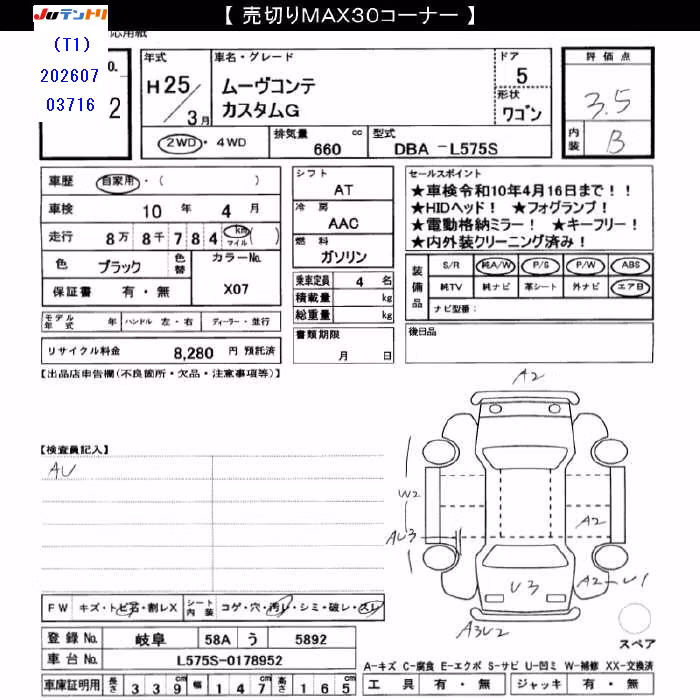 【 売切りMAX30コーナー 】
JUテントリ
応用紙
(T1)
202607
03716
o.
2
年式
H25/3月
車名・グレード
ムーヴコンテ
カスタムG
ドア
5
形状
ワゴン
評価点
3.5
内装
B
2WD・4WD
排気量
660 cc
型式
DBA -L575S
車歴 自家用・( )
車検 10 年 4 月
走行 8万 8千 7 8 4 km マイル ( )
色 ブラック 色替 カラーNo.
保証書 有・無 X07
シフト
AT
冷房
AAC
燃料
ガソリン
乗車定員 4 名
積載量 kg
総重量 kg
書類期限
月 日
セールスポイント
★車検令和10年4月16日まで！！
★HIDヘッド！ ★フォグランプ！
★電動格納ミラー！ ★キーフリー！
★内外装クリーニング済み！
装備品
S/R 純A/W P/S P/W ABS
純TV 純ナビ 革シート 外ナビ エアB
ナビ型番:
後日品
モデル年式 年 ハンドル 左・右 ディーラー・並行
リサイクル料金 8,280 円 預託済
【出品店申告欄(不良箇所・欠品・注意事項等)】
【検査員記入】
AU
A2
W2
AU3
A2
U3
A2-U1
A3U2
スペア
FW キズ・トビ石・割レX シート内装 コゲ・穴・汚レ・シミ・破レ・スレ
登録No. 岐阜 58A う 5892
車台No. L575S-0178952
車庫証明用 長さ 3 3 9 幅 1 4 7 高さ 1 6 5
cm cm cm
A-キズ C-腐食 E-エクボ S-サビ U-凹ミ W-補修 XX-交換済
工具 有・無 ジャッキ 有・無